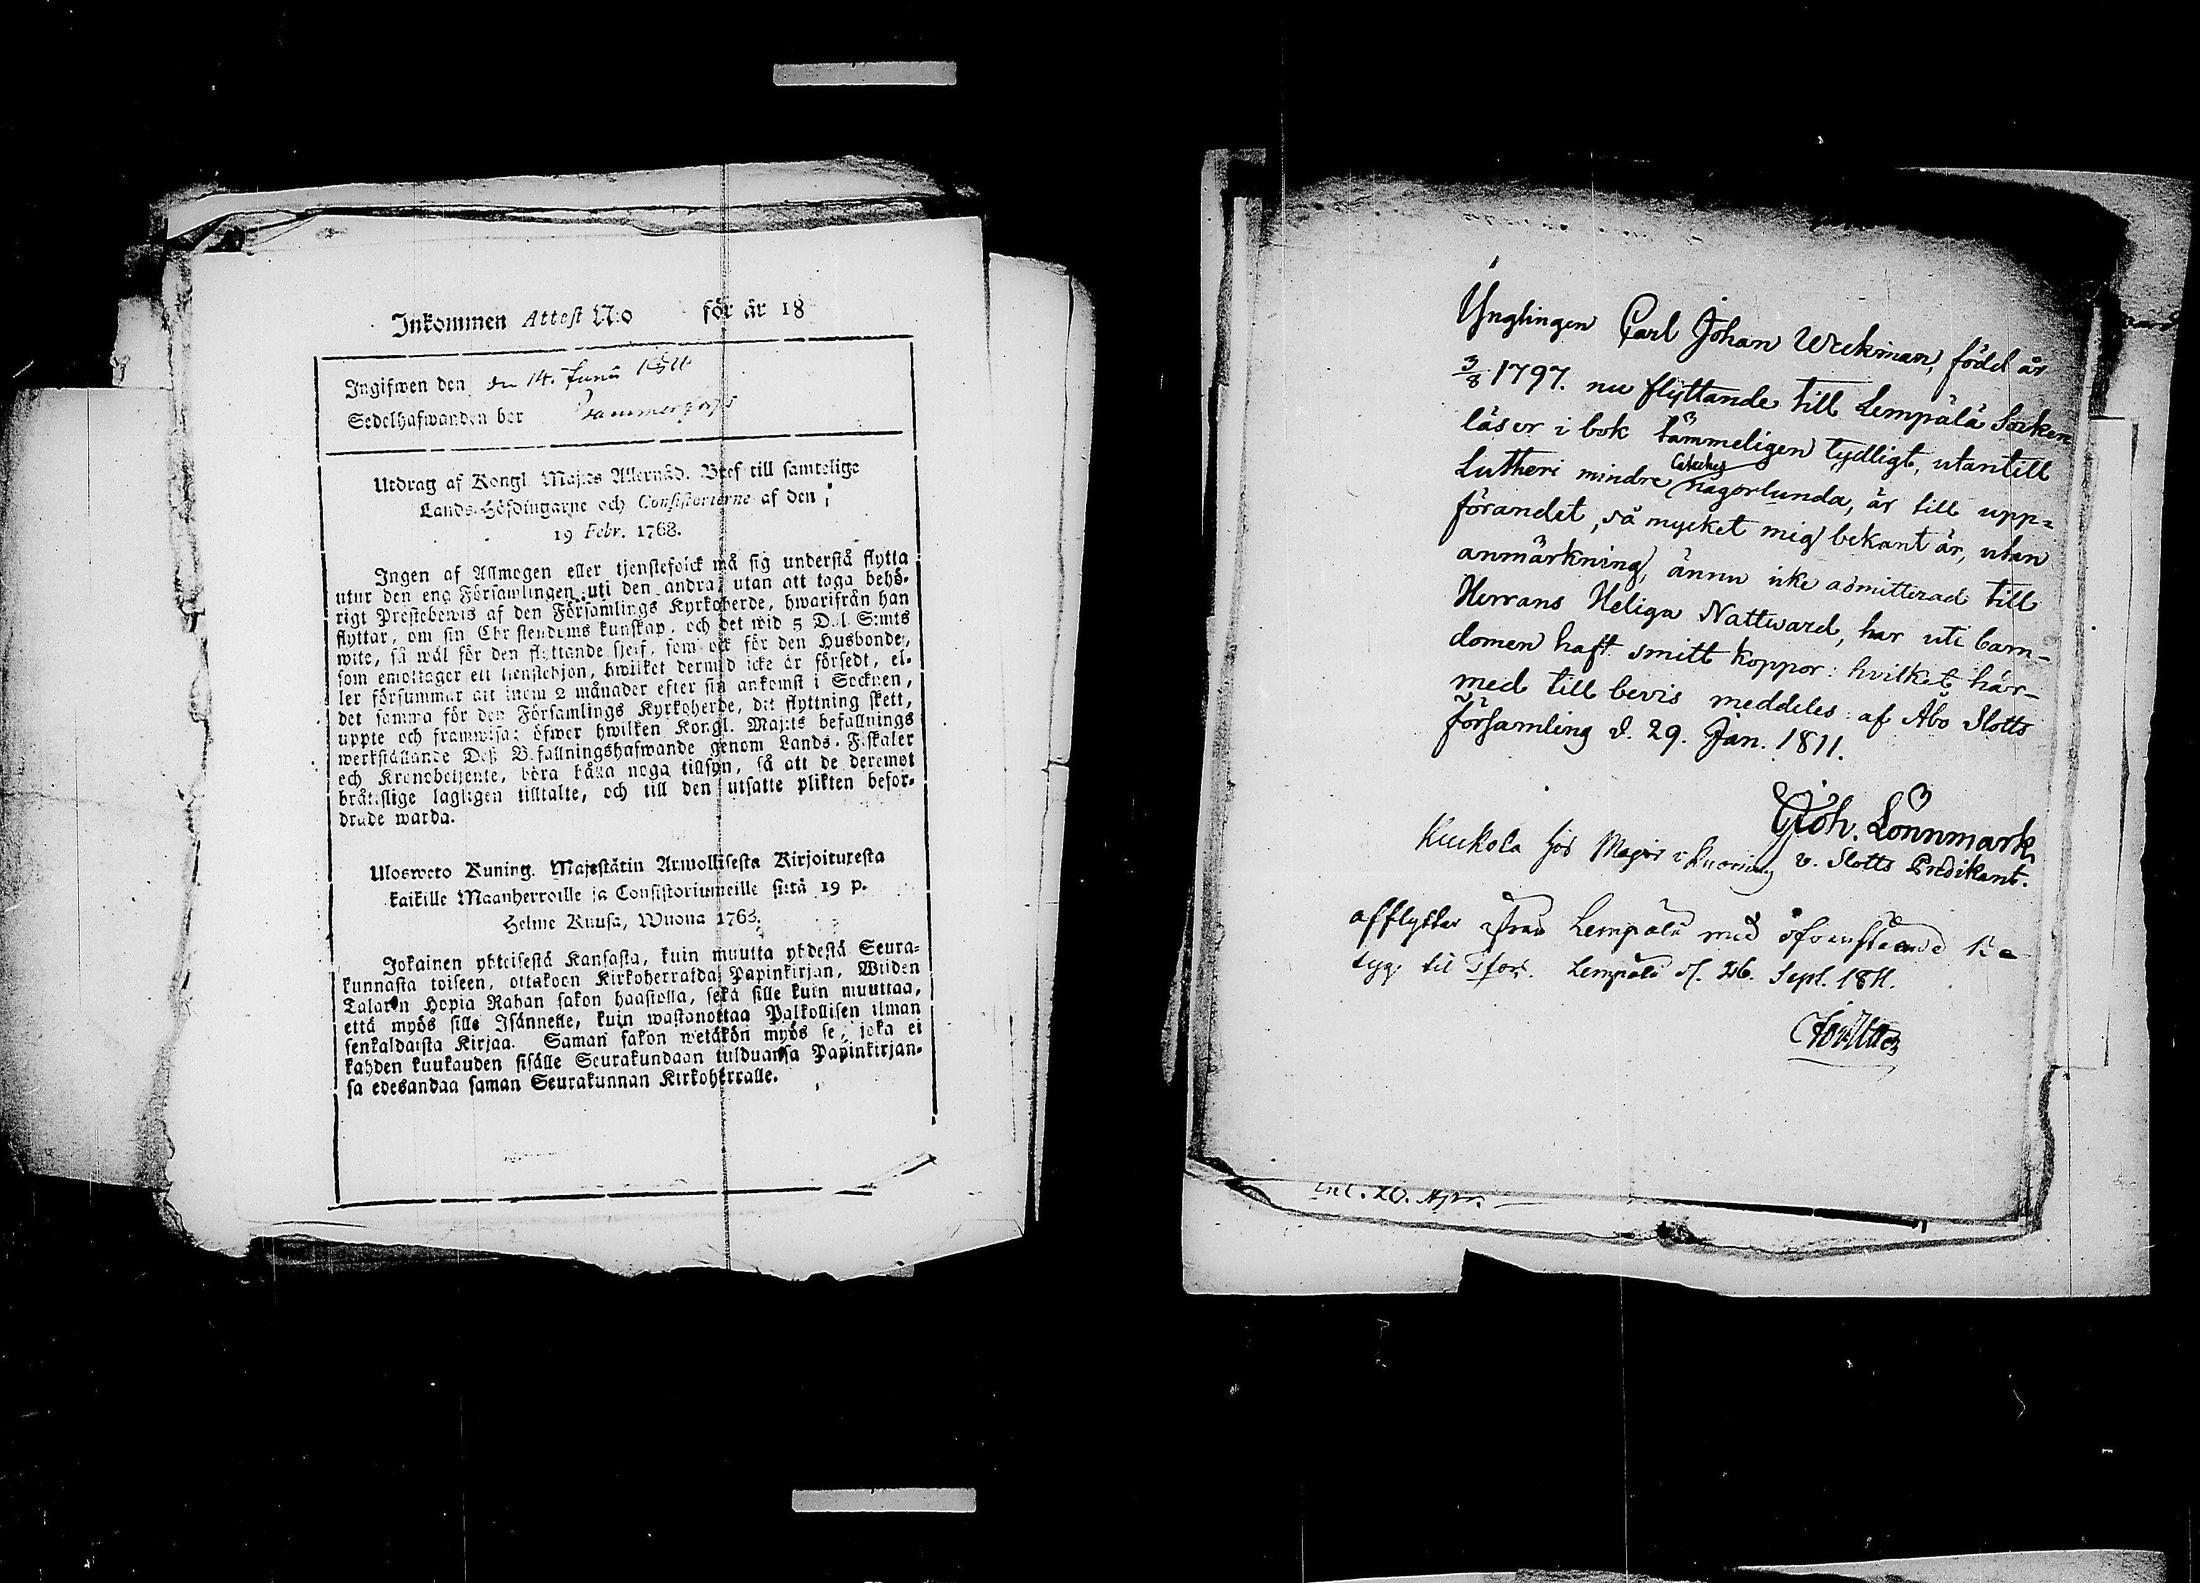 Inkommen Attest N:o för år 18
Ingifwen den den 14. Junii 1811
Sedelhafwanden bor
Utdrag af Kongl. Maj:ts Allernåd. Bref till samtelige
Lands-Höfdingarne och Consistorierne af den
19 Febr. 1768.
Ingen af Allmogen eller tjenstefolck må sig understå flytta
utur den ena Församlingen uti den andra, utan att taga behö-
rigt Prestebewis af den Församlings Kyrkoherde, hwarifrån han
flyttar, om sin Christendoms kunskap, och det wid 5 Dal. S:mts
wite, så wäl för den flyttande sjelf, som ock för den Husbonde,
som emottager ett tienstehjon, hwilket dermed icke är försedt, el-
ler försummar att inom 2 månader efter sin ankomst i Socknen,
det samma för den Församlings Kyrkoherde, dit flyttning skett,
uppte och framwisa: öfwer hwilken Kongl. Maj:ts befallnings
werkställande Deß Befallningshafwande genom Lands-Fiskaler
och Kronobetjente, böra hålla noga tillsyn, så att de deremot
bråtslige lagligen tilltalte, och till den utsatte plikten befor-
drade warda.
Uloswеto Kuning. Majestätin Armollisesta Kirjoituxesta
kaikille Maanherroille ja Consistoriumeille siitä 19 p.
Helme Kuusa, Wuona 1763.
Jokainen yhteisestä Kansasta, kuin muutta yhdestä Seura-
kunnasta toiseen, ottakoon Kirkoherralda Papinkirjan, Wiiden
Talarin Hopia Rahan sakon haastolla, sekä sille kuin muuttaa,
että myös sille Isännelle, kuin wastanottaa Palkollisen ilman
senkaldaista Kirjaa. Saman sakon wetäkön myös se, joka ei
kahden kuukauden sisälle Seurakundaan tulduansa Papinkirjan-
sa edesandaa saman Seurakunnan Kirkoherralle.
Ynglingen Carl Johan Weckman, född år
3/8 1797. nu flyttande till Lempälä Socken
läser i bok tämmeligen tydligt, utantill
Lutheri mindre Cateches någorlunda, är till upp=
förandet, så mycket mig bekant är, utan
anmärkning, ännu icke admitterad till
Herrans Heliga Nattward, har uti barn-
domen haft smitt koppor: hvilket här-
med till bevis meddeles af Åbo Slotts
församling d. 29. Jan. 1811.
Joh. Lönnmark
v. Slotts Predikant.
Kuckola hos Major
afflyttar ifrån Lempälä med ofvanstående Be
tyg til Lempälä d. 26. Sept. 1811.
Inl. 20. Apr.